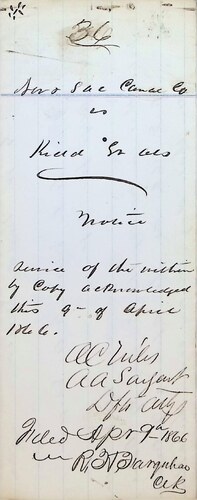 36
Nor & Sac Canal Co
vs
Kidd Et als
Notice
Service of the within
by Copy acknowledged
this 9th of April
1866.
A C Niles
A A Sargent
Dfts Attys
Filed Apr 9th 1866
R. H. Farquhar
Clk